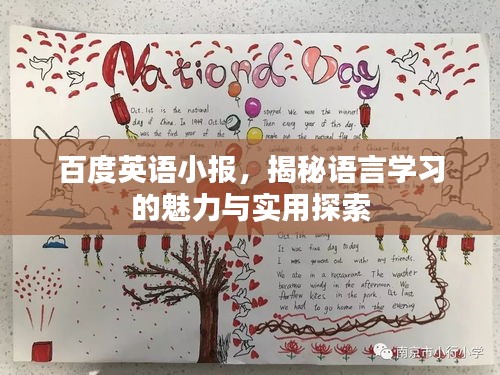 National Day
Oct. 1st is the national
day of China. In 1949 Oct. 1st
was the first year of the
stopped. We won the winner!
Then every year of this day.
people put the national flag
百度英语小报，揭秘语言学习
的魅力与实用探索
It was fine day today
I was going out with my friends.
We ate in a restaurant. The weather
became windy in the afternoon. We
flew kites in the park. At last
we had to go home in the evening
南京市小行小学